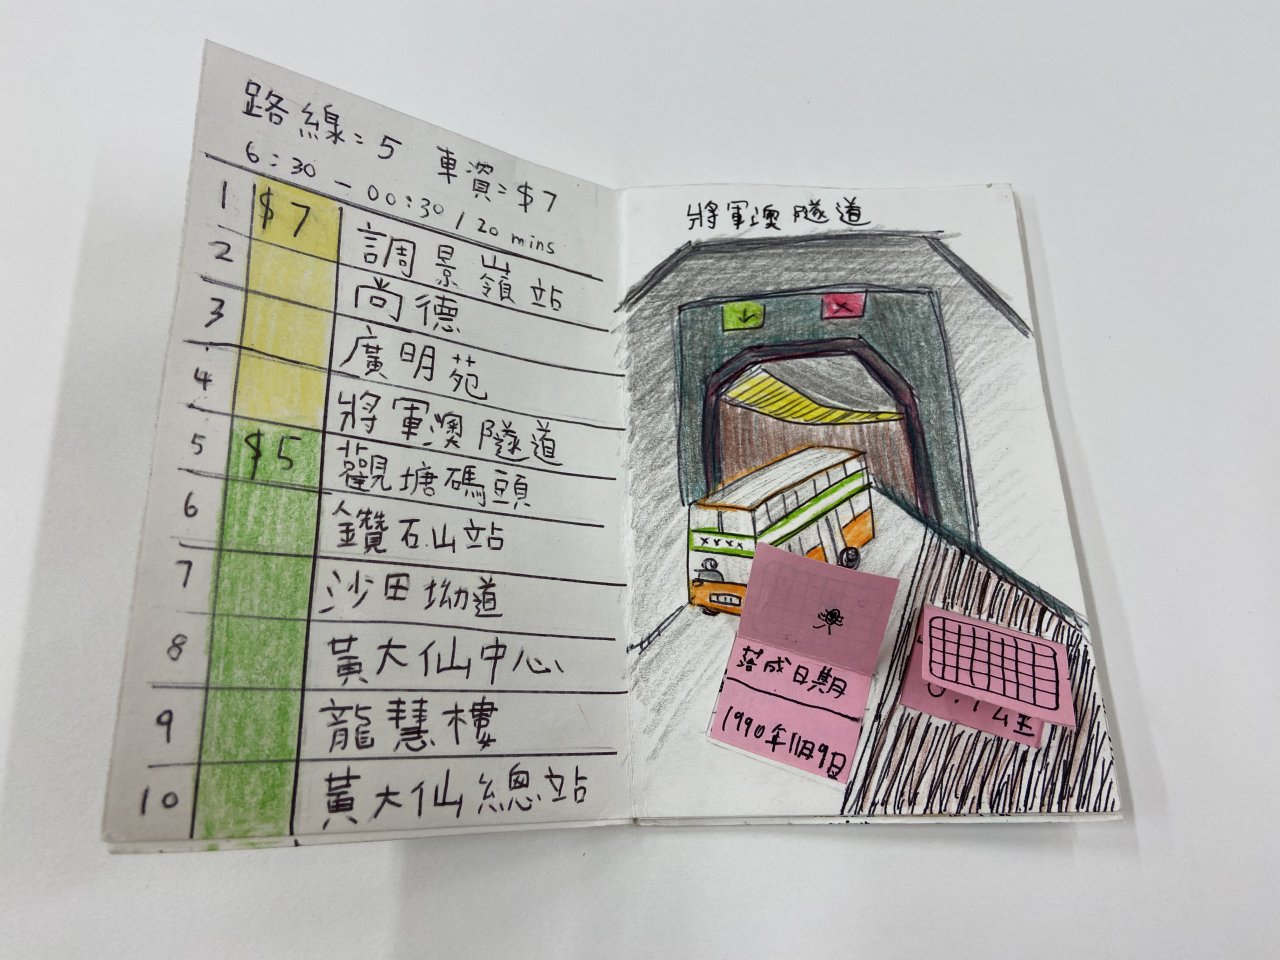 路線: 5 車資: $7
6:30 - 00:30 / 20 mins
1 $7 調景嶺站
2 尚德
3 廣明苑
4 將軍澳隧道
5 $5 觀塘碼頭
6 鑽石山站
7 沙田坳道
8 黃大仙中心
9 龍慧樓
10 黃大仙總站
將軍澳隧道
↓ x
xxxx
落成日期
1990年11月9日